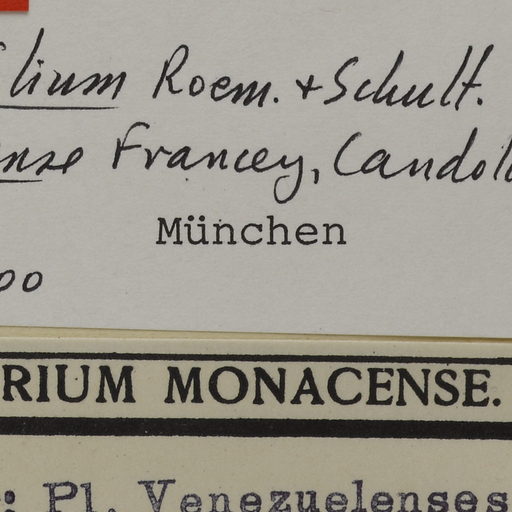 lium Roem. + Schult.
ense Francey, Candol
München
00
RIUM MONACENSE.
: Pl. Venezuelenses